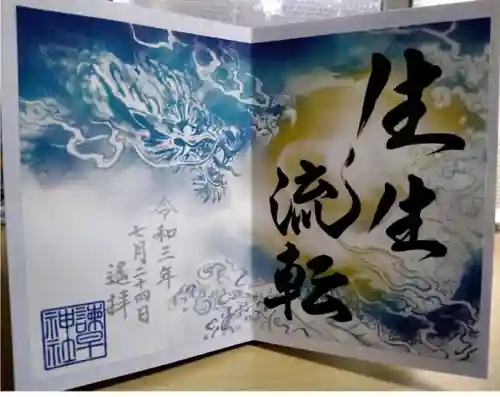 生生
流転
令和三年
七月二十四日
遙拝
諫早
神社